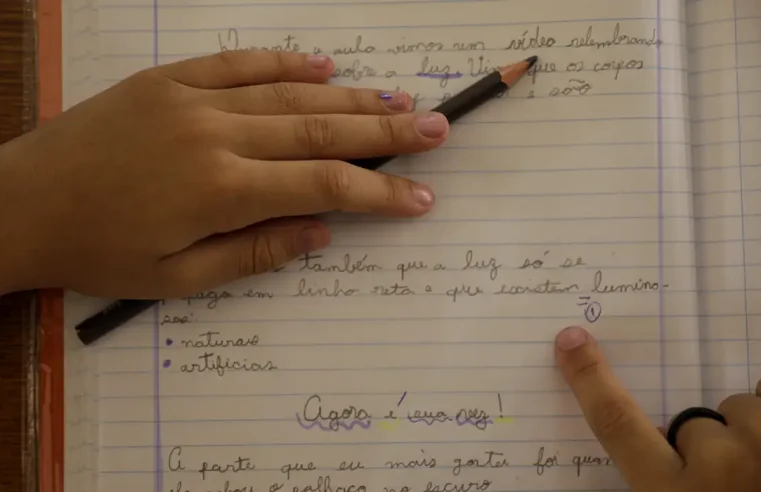 Durante a aula vimos um vídeo relembrando
sobre a luz. Vim que os corpos
e são
também que a luz só se
paga em linha reta e que existem lumino-
sos:
①
• naturais
• artificias
Agora é sua vez!
A parte que eu mais gostei foi quan
o palhaço no escuro